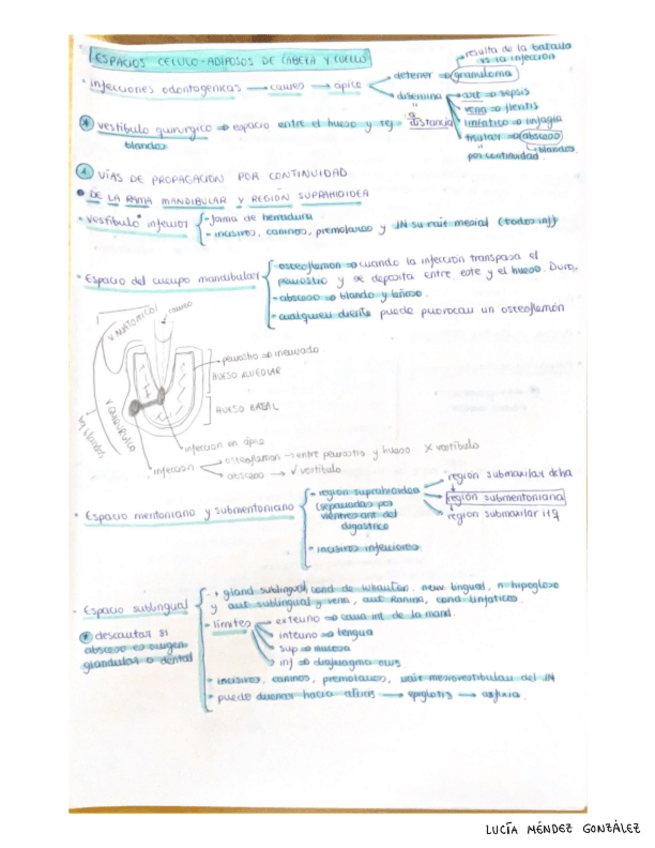 ESPACIOS CELULO-ADIPOSOS DE CABEZA Y CUELLO
resulta de la batalla
vs la infección
- infecciones odontogénicas → → ápice
detener ⇒ granuloma
disemina
art ⇒ sepsis
vena ⇒ flebitis
linfático ⇒
⇒ absceso
"por continuidad"
blandos
* vestíbulo quirurgico ⇒ espacio entre el hueso y tej
blandos
a distancia
1 VÍAS DE PROPAGACIÓN POR CONTINUIDAD
• DE LA RAMA MANDIBULAR Y REGIÓN SUPRAHIOIDEA
- vestíbulo inferior
- forma de herradura
- incisivos, caninos, premolares y 1M su raíz mesial (todos inf)
- Espacio del cuerpo mandibular
- osteoflemon ⇒ cuando la infección transpasa el
periostio y se deposita entre este y el hueso. Duro.
- absceso ⇒ blando y
- cualquier diente puede provocar un osteoflemón
V ANATOMICO
periostio ⇒
HUESO ALVEOLAR
HUESO BASAL
V QUIRÚRGICO
tej blandos
infección en ápice
infección
osteoflemon → entre periostio y hueso X vestíbulo
absceso → ✓ vestíbulo
- Espacio mentoniano y submentoniano
- región suprahioidea
(separados por
vientres ant del
digastrico
region submaxilar dcha
region submentoniana
region submaxilar izq
- incisivos inferiores
- Espacio sublingual
* descartar si
absceso es origen
glandular o dental
- + gland sublingual, cond de wharton, nerv. lingual, n hipogloso
y art sublingual y vena, art Ranina, cond linfaticos.
- límites
externo ⇒ cara int. de la mand.
interno ⇒ lengua
sup ⇒ mucosa
inf ⇒ diafragma oris
- incisivos, caninos, premolares, raíz mesiovestibular del 1M
- puede drenar hacia atras → epiglotis → asfixia.
LUCÍA MÉNDEZ GONZÁLEZ